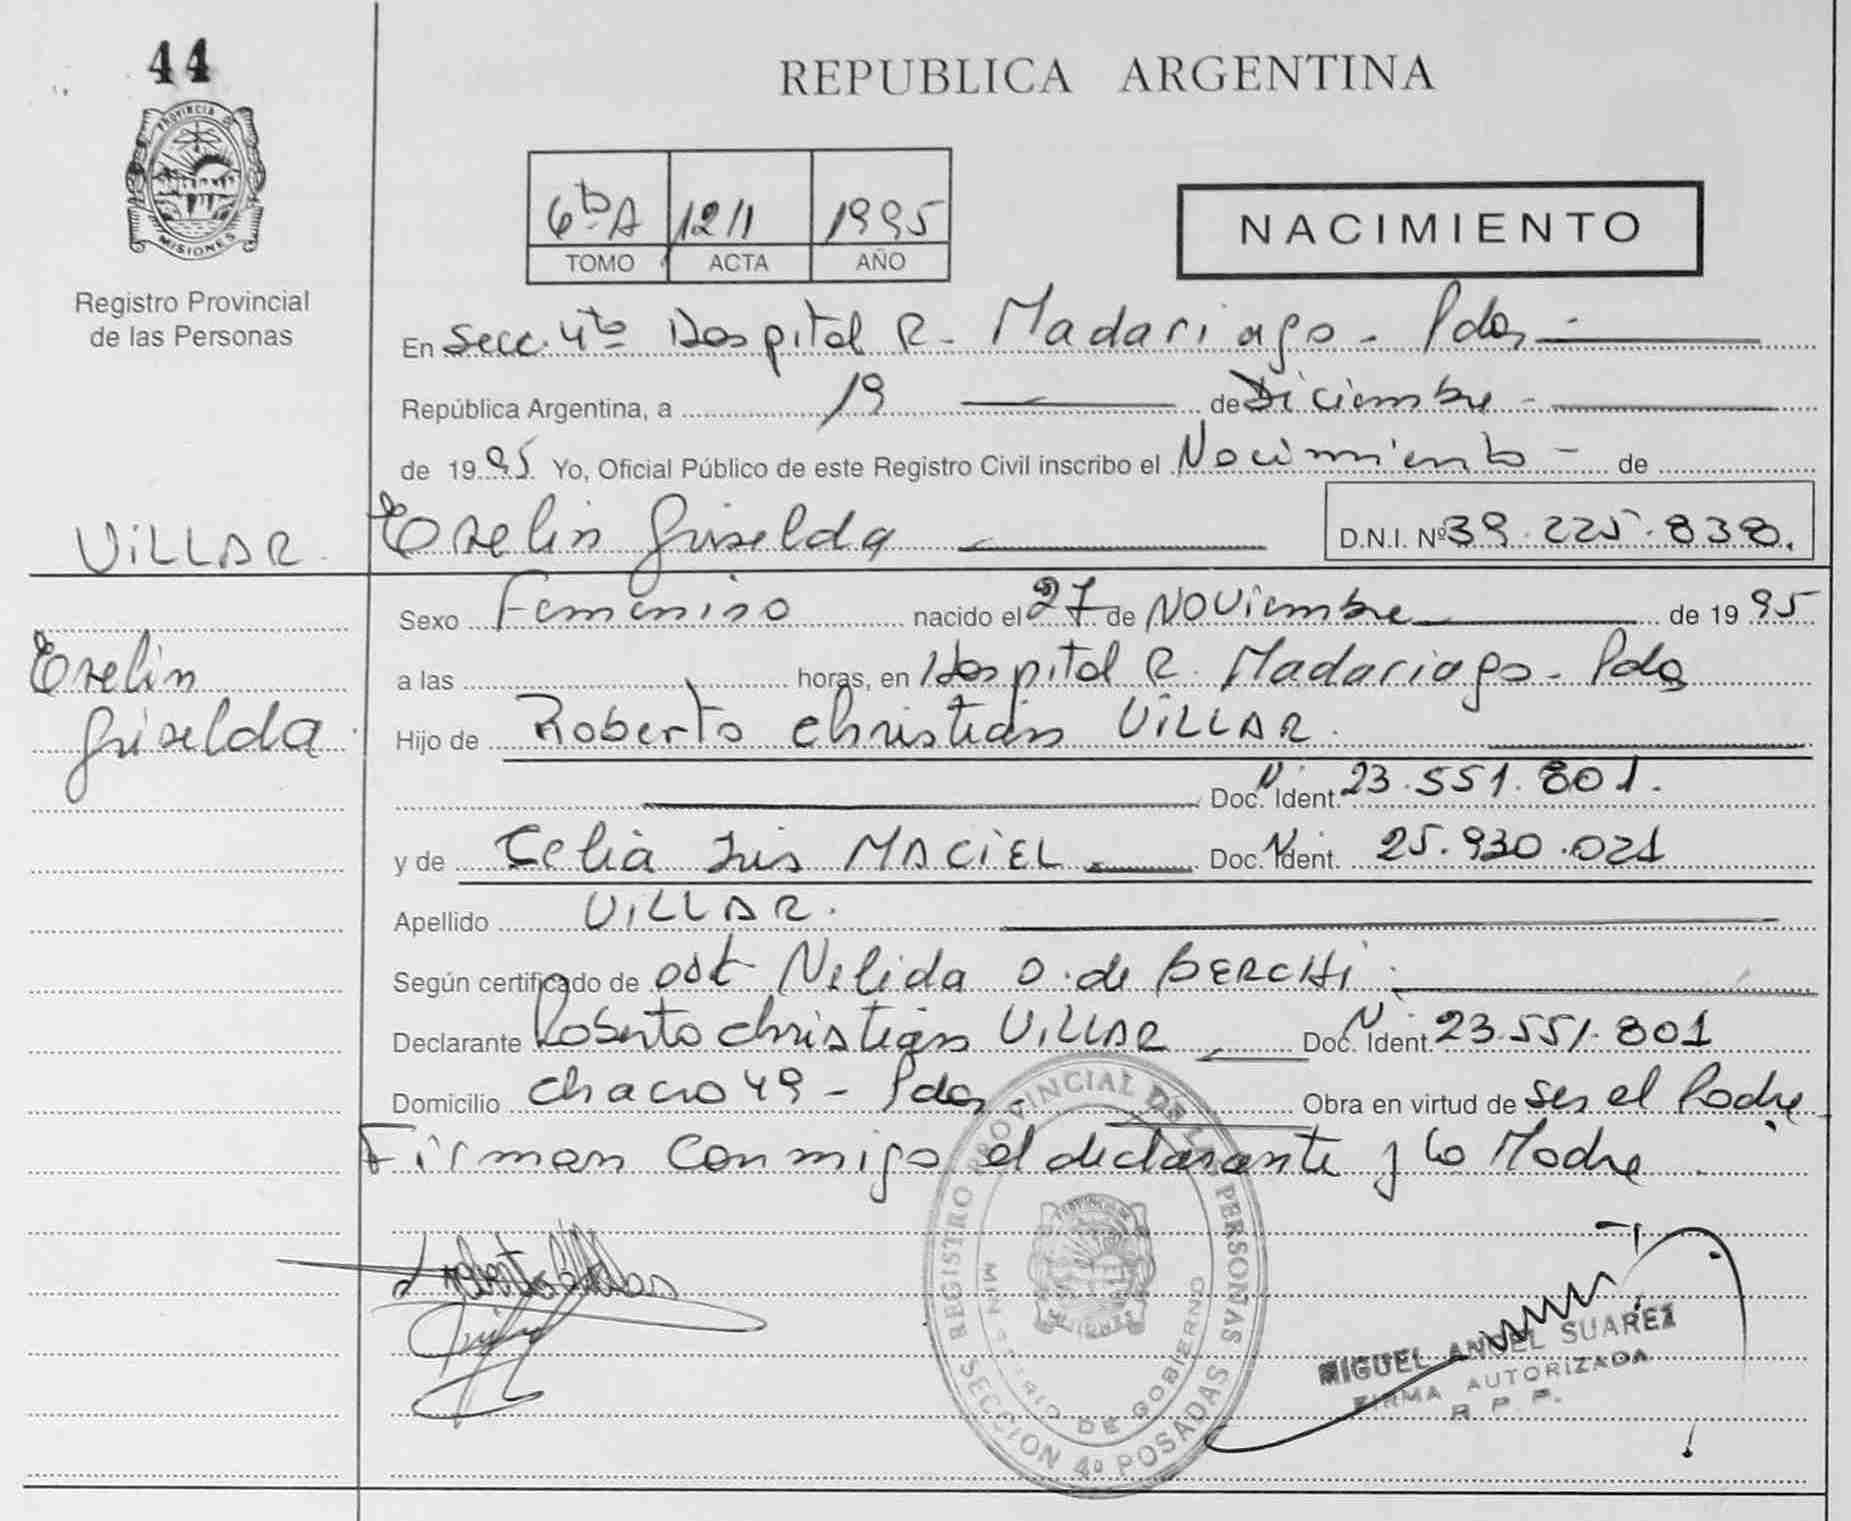 44
PROVINCIA DE
MISIONES
Registro Provincial
de las Personas
REPUBLICA ARGENTINA
6to A 1211 1995
TOMO ACTA AÑO
NACIMIENTO
En Secc. 4ta Hospital R. Madariaga - Pdas -
República Argentina, a 19 de Diciembre -
de 1995 Yo, Oficial Público de este Registro Civil inscribo el Nacimiento - de
VILLAR Evelin Griselda D.N.I. Nº 39.225.838.
Sexo Femenino nacido el 27 de Noviembre de 1995
Evelin
Griselda
a las horas, en Hospital R. Madariaga - Pdas
Hijo de Roberto Christian VILLAR.
Doc. N Ident. 23.551.801.
y de Celia Inis MACIEL Doc. N Ident. 25.930.021
Apellido VILLAR.
Según certificado de obst Nelida O. de BERCHI.
Declarante Roberto Christian VILLAR Doc. N Ident. 23.551.801
Domicilio Chacra 49 - Pdas - Obra en virtud de ser el Padre
Firman conmigo el declarante y la Madre.
REGISTRO PROVINCIAL DE LAS PERSONAS
MINISTERIO DE GOBIERNO
SECCION 4º POSADAS
MIGUEL ANGEL SUAREZ
FIRMA AUTORIZADA
R. P. P.